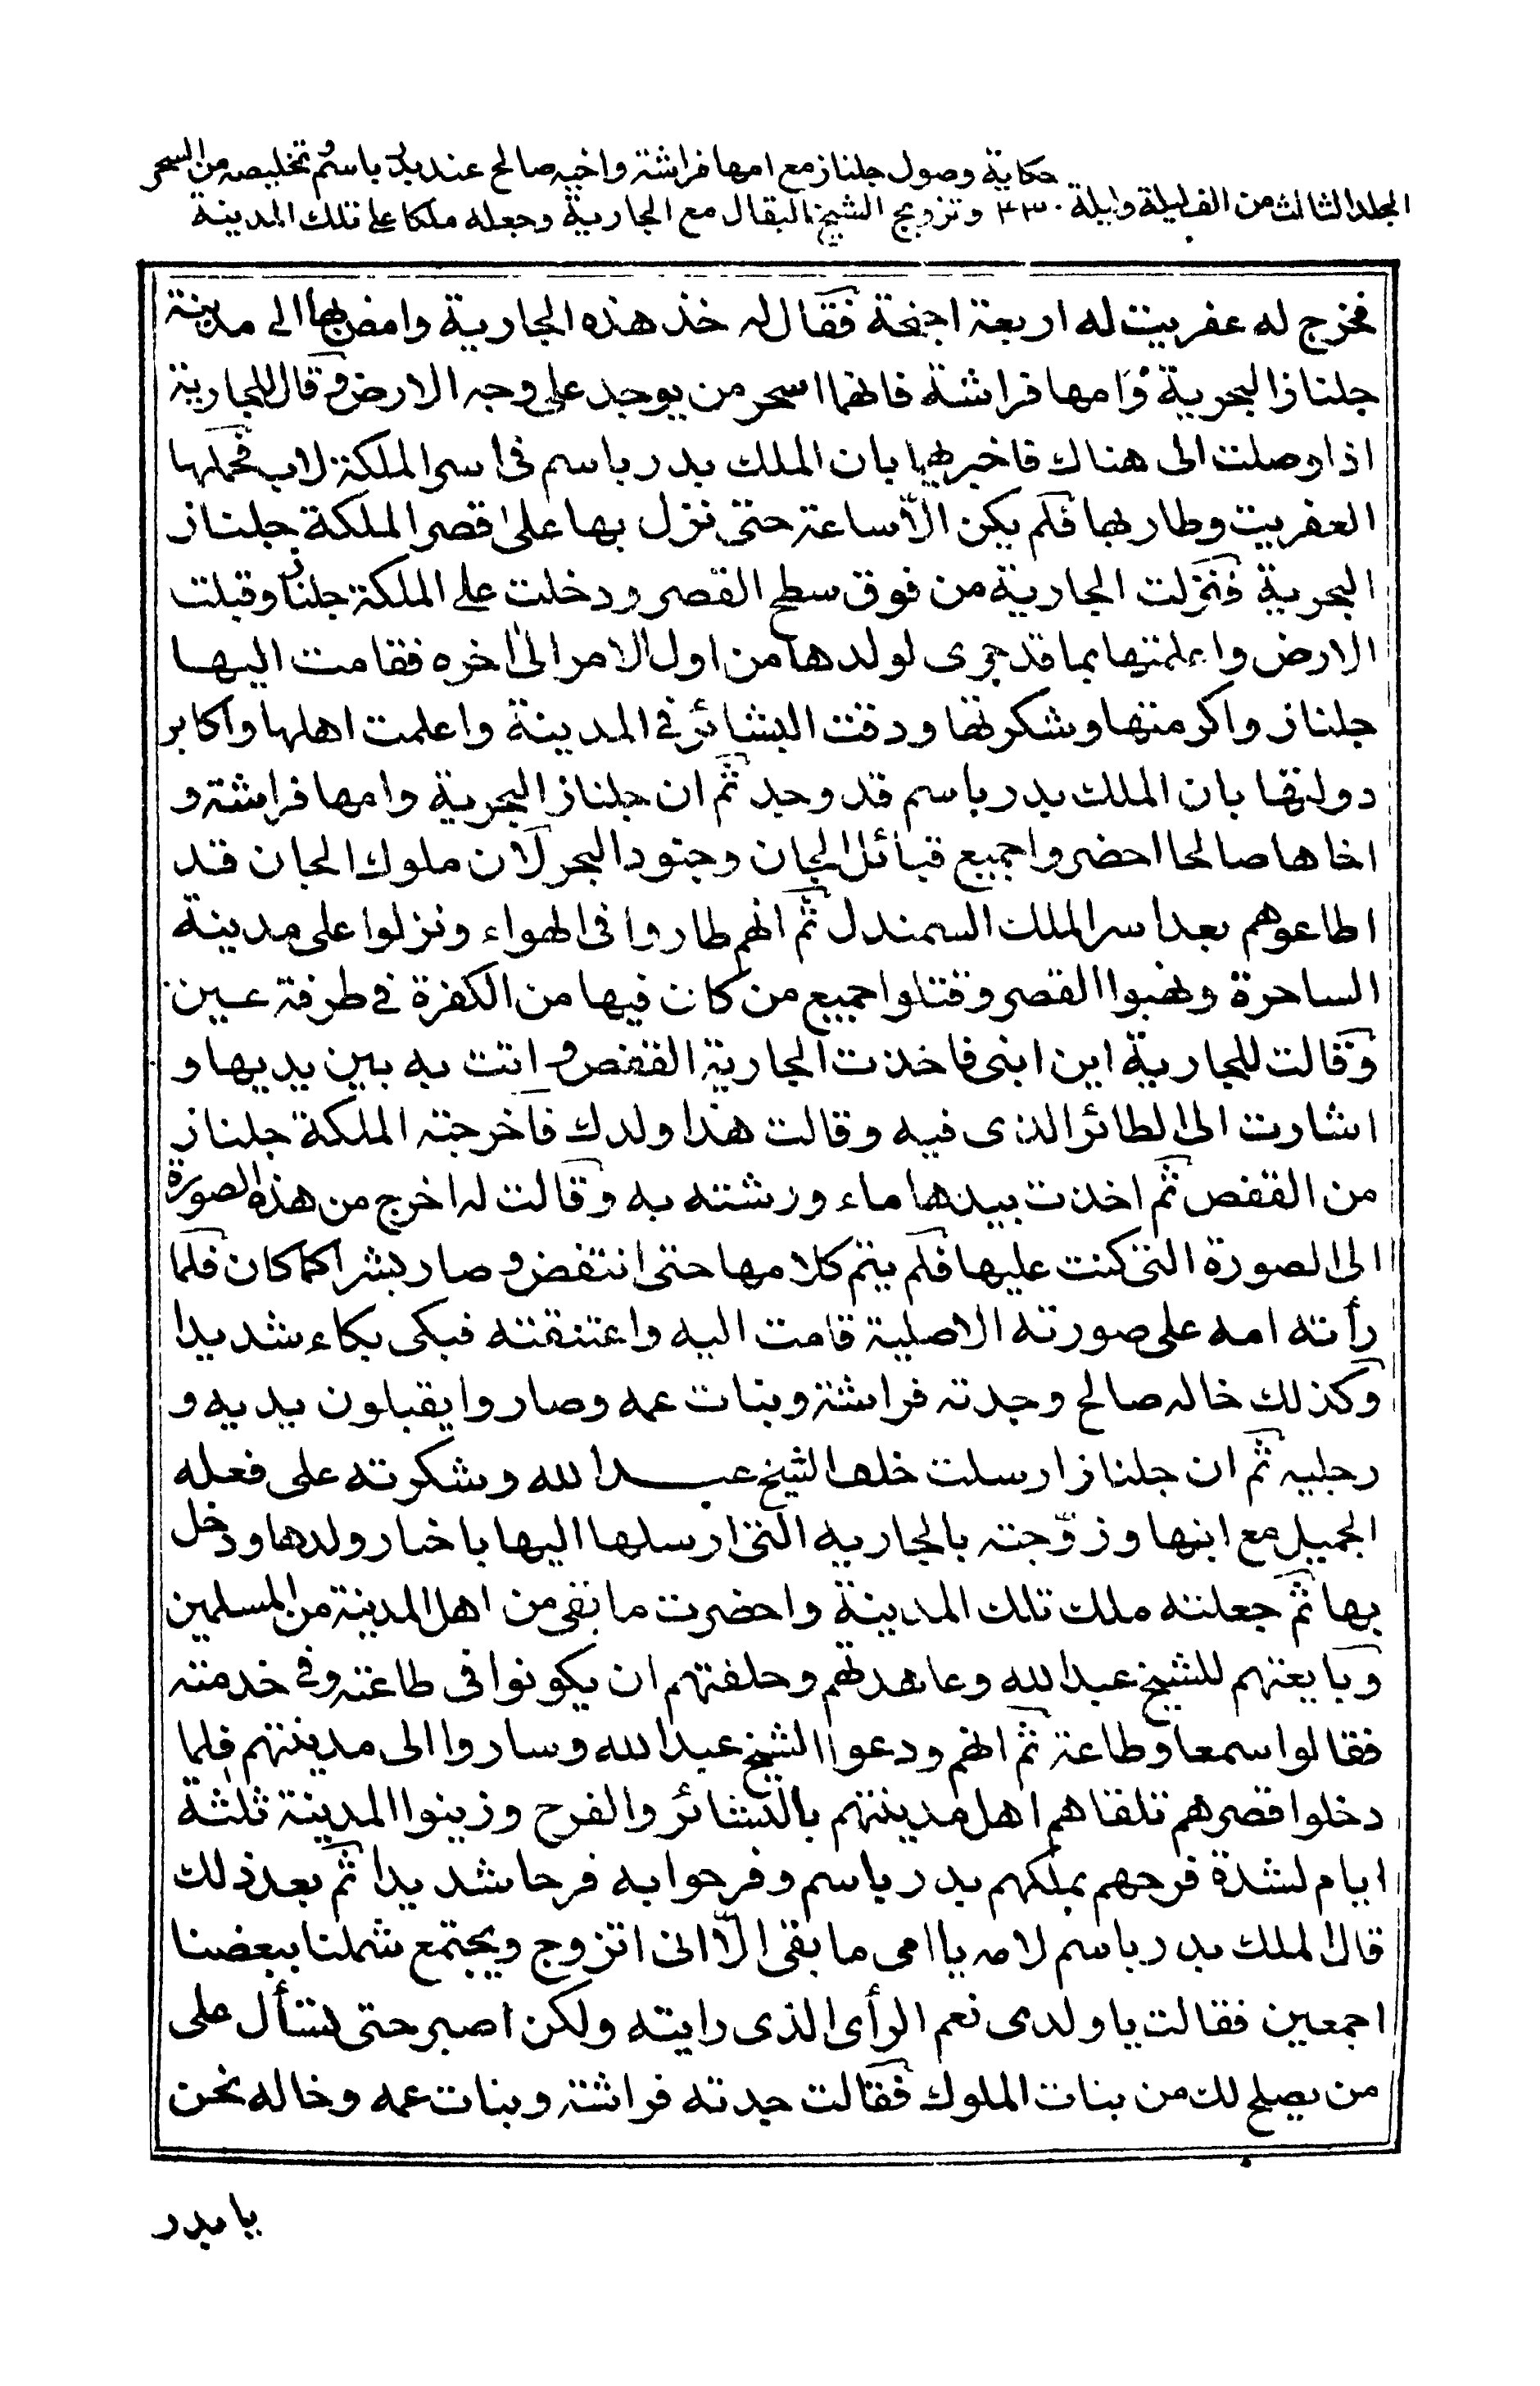 حكاية وصول جلناز مع امها فراشة واخيه صالح عند بدر باسم وتخليصه من السحر
المجلد الثالث من الف ليلة وليلة ٣٣٠ وتزويج الشيخ البقال مع الجارية وجعله ملكا على تلك المدينة
فخرج له عفريت له اربعة اجنحة فقال له خذ هذه الجارية وامض بها الى مدينة
جلناز البحرية وامها فراشة فانهما اسحر من يوجد على وجه الارض وقال للجارية
اذا وصلت الى هناك فاخبريهما بان الملك بدر باسم فى اسر الملكة لاب فحملها
العفريت وطار بها فلم يكن الّا ساعة حتى نزل بها على قصر الملكة جلناز
البحرية فنزلت الجارية من فوق سطح القصر ودخلت على الملكة جلناز وقبلت
الارض واعلمتها بما قد جرى لولدها من اول الامر الى اخره فقامت اليها
جلناز واكرمتها وشكرتها ودقت البشائر فى المدينة واعلمت اهلها واكابر
دولتها بان الملك بدر باسم قد وجد ثم ان جلناز البحرية وامها فراشة و
اخاها صالحا احضروا جميع قبائل الجان وجنود البحر لان ملوك الجان قد
اطاعوهم بعد اسر الملك السمندل ثم انهم طاروا فى الهواء ونزلوا على مدينة
الساحرة ونهبوا القصر وقتلوا جميع من كان فيها من الكفرة فى طرفة عين
وقالت للجارية اين ابنى فاخذت الجارية القفص واتت به بين يديها و
اشارت الى الطائر الذى فيه وقالت هذا ولدك فاخرجته الملكة جلناز
من القفص ثم اخذت بيدها ماء ورشته به وقالت له اخرج من هذه الصورة
الى الصورة التى كنت عليها فلم يتم كلامها حتى انتفض وصار بشرا كما كان فلما
رأته امه على صورته الاصلية قامت اليه واعتنقته فبكى بكاء شديدا
وكذلك خاله صالح وجدته فراشة وبنات عمه وصاروا يقبلون يديه و
رجليه ثم ان جلناز ارسلت خلف الشيخ عبد الله وشكرته على فعله
الجميل مع ابنها وزوّجته بالجارية التى ارسلها اليها باخبار ولدها ودخل
بها ثم جعلته ملك تلك المدينة واحضرت ما بقى من اهل المدينة من المسلمين
وبايعتهم للشيخ عبد الله وعاهدتهم وحلفتهم ان يكونوا فى طاعته وفى خدمته
فقالوا سمعا وطاعة ثم انهم ودعوا الشيخ عبد الله وساروا الى مدينتهم فلما
دخلوا قصرهم تلقاهم اهل مدينتهم بالبشائر والفرح وزينوا المدينة ثلثة
ايام لشدة فرحهم بملكهم بدر باسم وفرحوا به فرحا شديدا ثم بعد ذلك
قال الملك بدر باسم لامه يا امى ما بقى الّا انى اتزوج ويجتمع شملنا ببعضنا
اجمعين فقالت يا ولدى نعم الرأى الذى رايته ولكن اصبر حتى نسأل على
من يصلح لك من بنات الملوك فقالت جدته فراشة وبنات عمه وخاله نحن
يا بدر